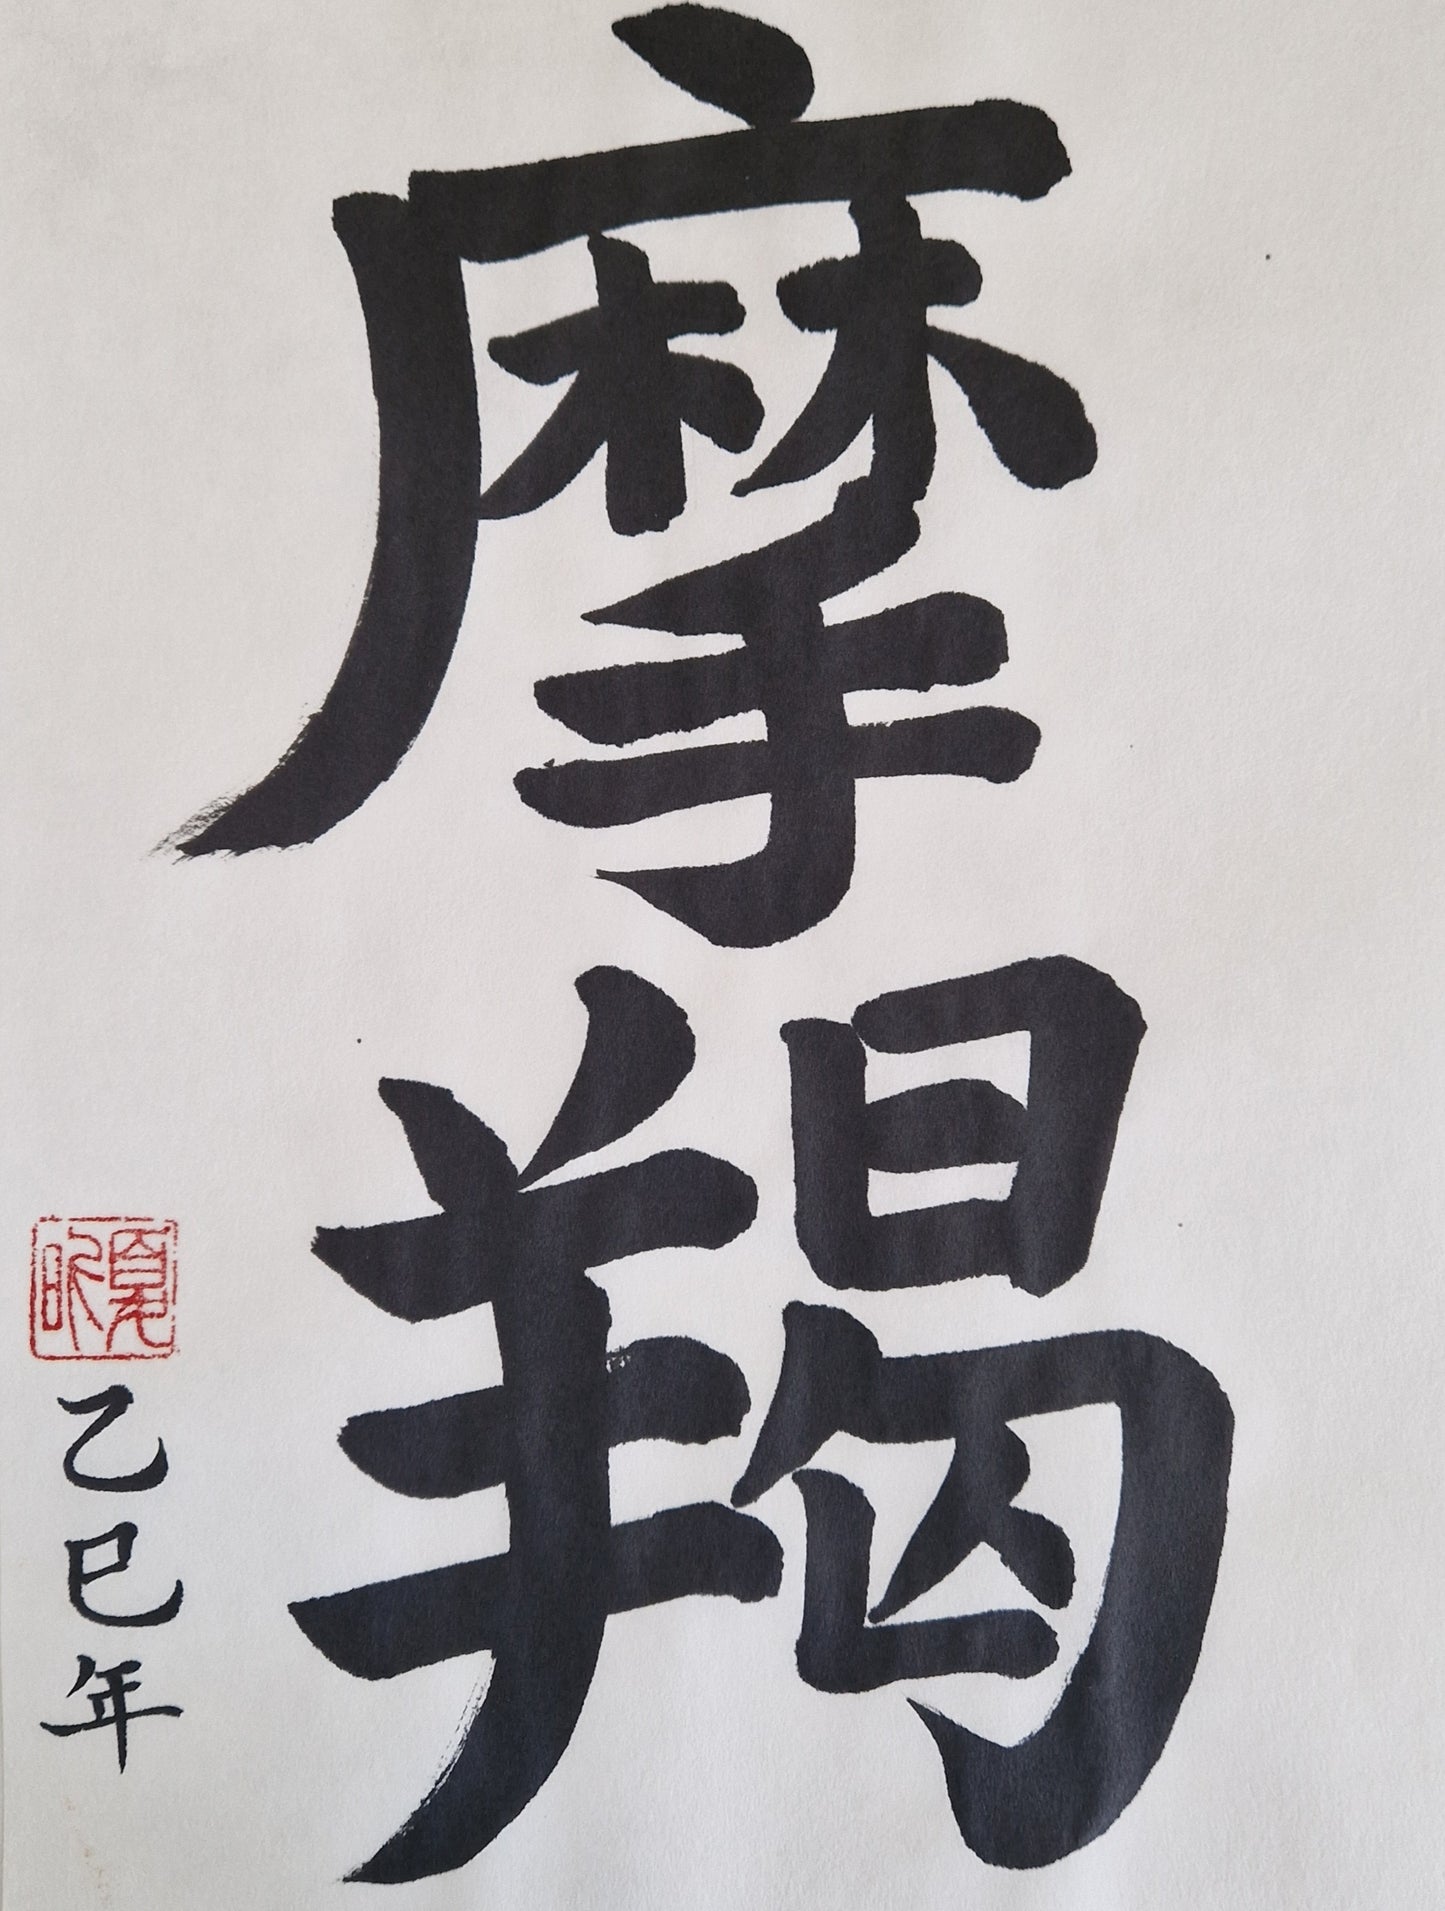 摩羯
乙巳年